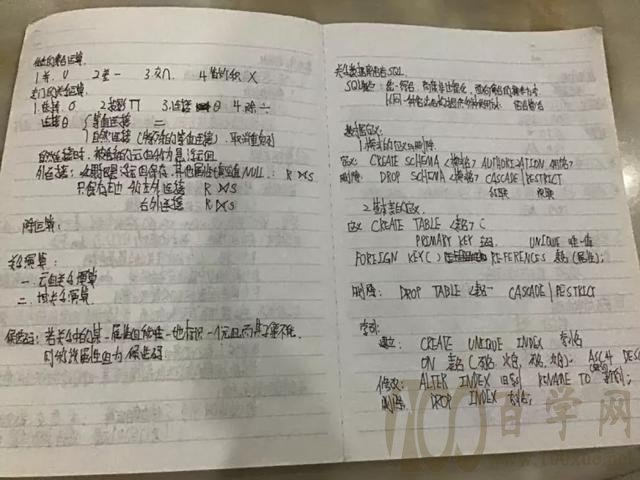 传统的集合运算
1.并 U 2差 - 3.交∩ 4 笛卡尔积 X
专门的关系运算
1.选择 σ 2投影 Π 3.连接 θ 4 除 ÷
连接θ { 等值连接 =
自然连接(特殊的等值连接),取消重复列
自然连接时,被舍弃的元组称为悬浮元组
外连接:如果把悬浮元组保存,其他属性填空值NULL: R⋈S
左外连接 R⋈S
右外连接 R⋈S
除运算:
关系演算:
一.元组关系演算
二.域关系演算
候选码:若关系中的某一属性组能唯一地标识一个元组,而其子集不能,
则称该属性组为候选码
关系数据库语言SQL
SQL特点:
数据定义:
1.模式的定义与删除
定义: CREATE SCHEMA <模式名> AUTHORIZATION <用户名>
删除: DROP SCHEMA <模式名> CASCADE|RESTRICT
级联
2.基本表的定义.
定义 CREATE TABLE <表名> (
PRIMARY KEY 主码. UNIQUE 唯一值
FOREIGN KEY( ) REFERENCES 表名(属性);
删除: DROP TABLE <表名> CASCADE|RESTRICT
索引:
建立: CREATE UNIQUE INDEX 索引名
ON 表名(列名 次序, 列名, 次序). ASC升 DESC
修改: ALTER INDEX 旧名 RENAME TO 新名;
删除: DROP INDEX 索引名;
100自学网
www.100xue.net